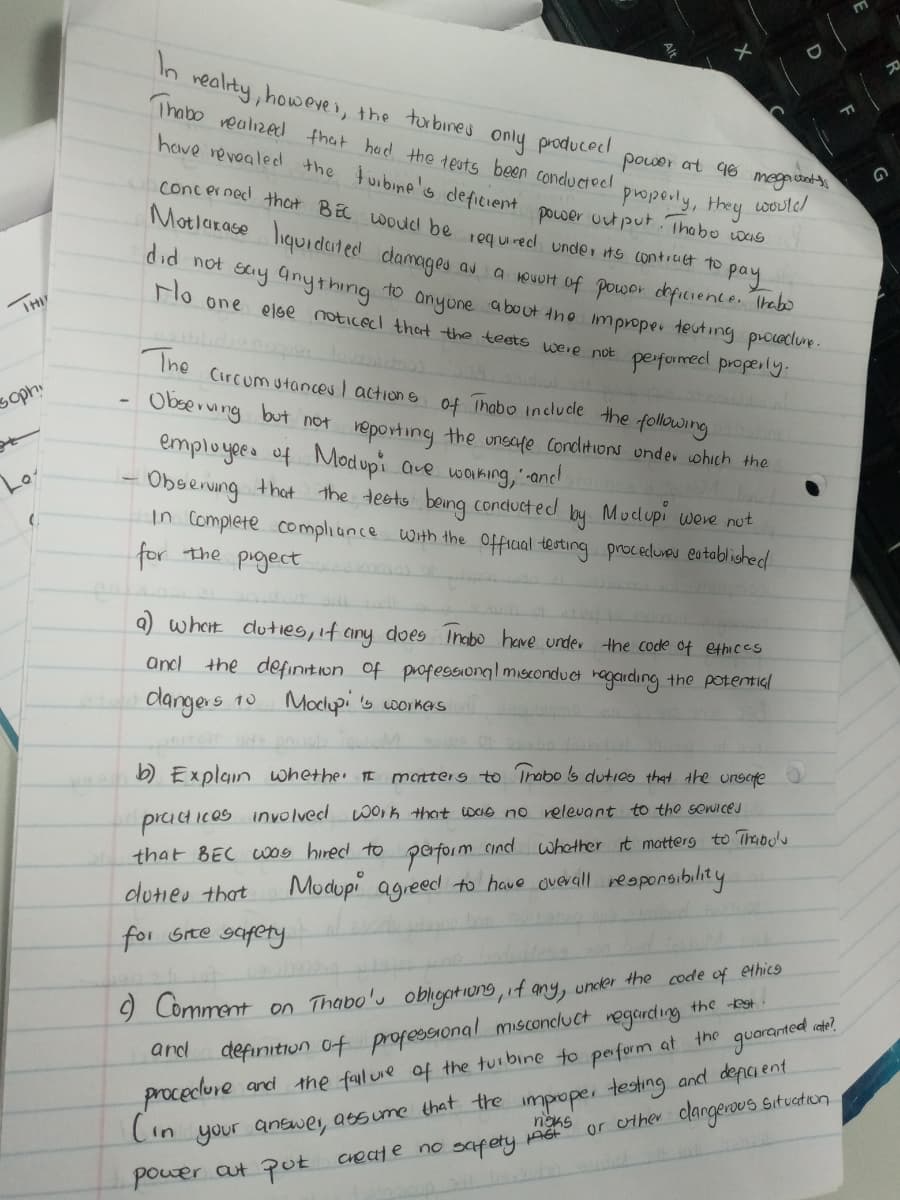 In reality, however, the turbines only produced power at 98 megawatts
Thabo realized that had the tests been conducted properly, they would
have revealed the turbine's deficient power output. Thabo was
concerned that BEC would be required under its contract to pay
Motlakase liquidated damages as a result of power deficience. Thabo
did not say anything to anyone about the improper testing procedure.
No one else noticed that the tests were not performed properly.
The circumstances / actions of Thabo include the following
- Observing but not reporting the unsafe conditions under which the
employees of Modupi are working, and
- Observing that the tests being conducted by Modupi were not
in complete compliance with the official testing procedures established
for the project
a) what duties, if any does Thabo have under the code of ethices
and the definition of professional misconduct regarding the potential
dangers to Modupi's workers
b) Explain whether it matters to Thabo's duties that the unsafe
practices involved work that was no relevant to the services
that BEC was hired to perform and whether it matters to Thabo's
duties that Modupi agreed to have overall responsibility
for site safety
c) Comment on Thabo's obligations, if any, under the code of ethics
and definition of professional misconduct regarding the test
procedure and the failure of the turbine to perform at the guaranted rate?
(in your answer, assume that the improper testing and deficient
power out put create no safety risks or other dangerous situation
Alt
X
C
D
F
E
R
G